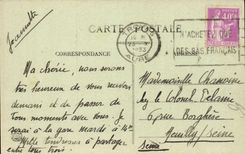 Jeannette
CARTE POSTALE
CORRESPONDANCE
N'ACHETEZ QUE
DES BAS FRANÇAIS
Ma chérie, nous serons
très heureux de vous recevoir
demain et de passer de
bons moments avec vous. Je
serai à la gare mardi à 4h
Mille tendresses à partager
entre vous trois.
Mademoiselle Chanoine
Rue Borghèse
Neuilly / Seine
Seine